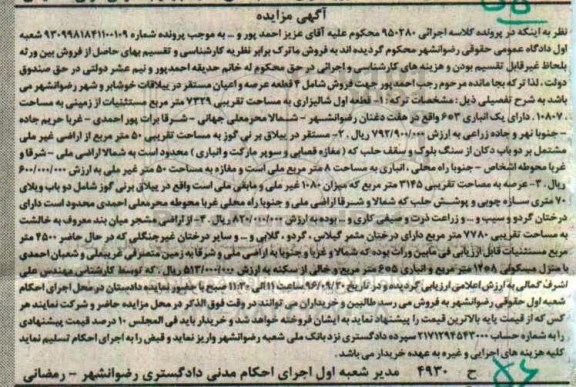 آگهی مزایده
نظر به اینکه در پرونده کلاسه اجرائی ۹۵۰۲۸۰ محکوم علیه آقای عزیز احمد پور و ... به موجب پرونده شماره ۹۳۰۹۹۸۱۸۴۱۱۰۰۱۰۹ شعبه
اول دادگاه عمومی حقوقی رضوانشهر محکوم گردیده اند به فروش ماترک برابر نظریه کارشناسی و تقسیم بهای حاصل از فروش بین ورثه
بلحاظ غیرقابل تقسیم بودن و هزینه های کارشناسی و اجرائی در حق محکوم له خانم حدیقه احمدپور و نیم عشر دولتی در حق صندوق
دولت. لذا ترکه بجا مانده مرحوم رجب احمدپور جهت فروش شامل ۴ قطعه عرصه و اعیان مستقر در ییلاقات خوشابر و شهر رضوانشهر می
باشد به شرح تفصیلی ذیل: مشخصات ترکه: ۱- قطعه اول شالیزاری به مساحت تقریبی ۷۳۲۹ متر مربع مستثنیات از زمینی به مساحت
۱۰۸۰۷۰ دارای پلاک انباری ۶۰۳ واقع در هفت دغنان رضوانشهر - شمالا محرمعلی جهانی - شرقا برات پور احمدی - غربا حریم جاده
- جنوبا نهر و جاده زراعی به ارزش ۷۹۲/۹۰۰/۰۰۰ ریال. ۲- مستقر در ییلاق بر نی گوز به مساحت تقریبی ۵۰ متر مربع از اراضی غیر ملی
مشتمل بر دو باب دکان از سنگ بلوک و سقف حلب که ( مغازه قصابی و سوپر مارکت و انباری ) محدود است به شمالا اراضی ملی - شرقا و
غربا محوطه اشخاص - جنوبا راه محلی. انباری به مساحت ۸ متر مربع ملی است و مغازه به مساحت ۵۰ متر غیر ملی به ارزش ۶۰۰/۰۰۰/۰۰۰
ریال. ۳- عرصه به مساحت تقریبی ۳۱۴۵ متر مربع که میزان ۱۰۸۰ غیر ملی و مابقی ملی است واقع در ییلاق برنی گوز شامل دو باب ویلای
۷۰ متری سازه چوبی و پوشش حلب که شمالا و شرقا اراضی ملی و جنوبا راه محلی غربا محوطه محرمعلی احمدی محدود است دارای
درختان گردو و سیب و ... و زراعت ذرت و صیفی کاری و ... بوده به ارزش ۸۲۰/۰۰۰/۰۰۰ ریال. ۴- از اراضی مشجر میان بند معروف به خالشت
به مساحت تقریبی ۷۷۸۰ متر مربع دارای درختان مثمر گیلاس، گردو، گلابی و ... و سایر درختان غیرجنگلی که در حال حاضر ۴۵۰۰ متر
مربع مستثنیات قابل ارزیابی فی مابین وراث بوده که شمالا و غربا و جنوبا به اراضی ملی و شرقا به زمین متصرفی غریبعلی و شعبان احمدی
با منزل مسکونی ۱۲۵۸ متر مربع و انباری ۶۰۵ متر مربع و خالی از سکنه به ارزش ۵۱۳/۰۰۰/۰۰۰ ریال. که توسط کارشناس مهندس علی
اشرف کمالی به ارزش اعلامی ارزیابی گردیده و در تاریخ ۹۶/۰۹/۲۰ ساعت ۱۱ الی ۱۱:۳۰ صبح با حضور نماینده دادستان در محل اجرای احکام
شعبه اول حقوقی رضوانشهر به فروش می رسد طالبین و خریداران می توانند در وقت فوق الذکر در محل مزایده حاضر و شرکت نمایند هر
کس که از قیمت پایه بالاترین قیمت را پیشنهاد نماید به ایشان فروخته خواهد شد و خریدار باید فی المجلس ۱۰ درصد قیمت پیشنهادی
را به شماره حساب ۲۱۷۱۲۹۲۵۴۳۰۰۰ سپرده دادگستری نزد بانک ملی شعبه رضوانشهر واریز نماید و قبض را به اجرای احکام تسلیم نماید
کلیه هزینه های اجرایی و غیره به عهده خریدار می باشد.
ح ۴۹۳۰ مدیر شعبه اول اجرای احکام مدنی دادگستری رضوانشهر - رمضانی